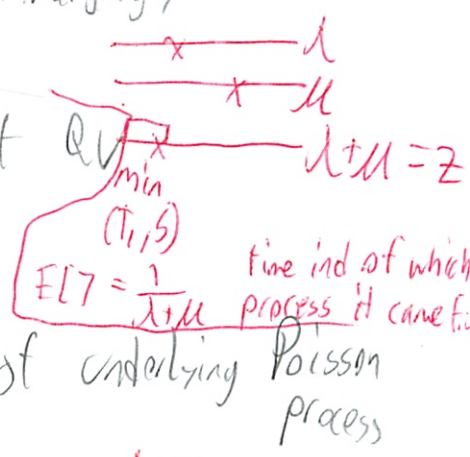 λ
μ
λ+μ=z
min
(T₁,S)
E[] = 1/(λ+μ)
time ind of which
process it came
of underlying Poisson
process